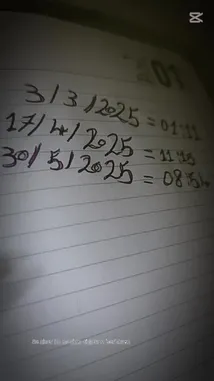 01
3/3/2025 = 01:11
17/4/2025 = 11:16
30/5/2025 = 08:54